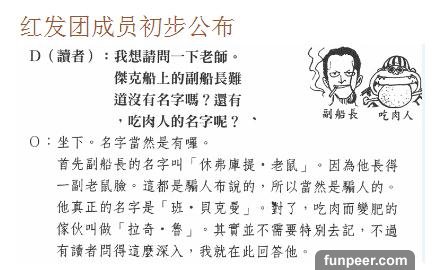 红发团成员初步公布
D（讀者）：我想請問一下老師。
傑克船上的副船長難
道沒有名字嗎？還有
，吃肉人的名字呢？、
副船長 吃肉人
O：坐下。名字當然是有囉。
首先副船長的名字叫「休弗庫提·老鼠」。因為他長得
一副老鼠臉。這都是騙人布說的，所以當然是騙人的。
他真正的名字是「班·貝克曼」。對了，吃肉而變肥的
傢伙叫做「拉奇·魯」。其實並不需要特別去記，不過
有讀者問得這麼深入，我就在此回答他。
funpeer.com